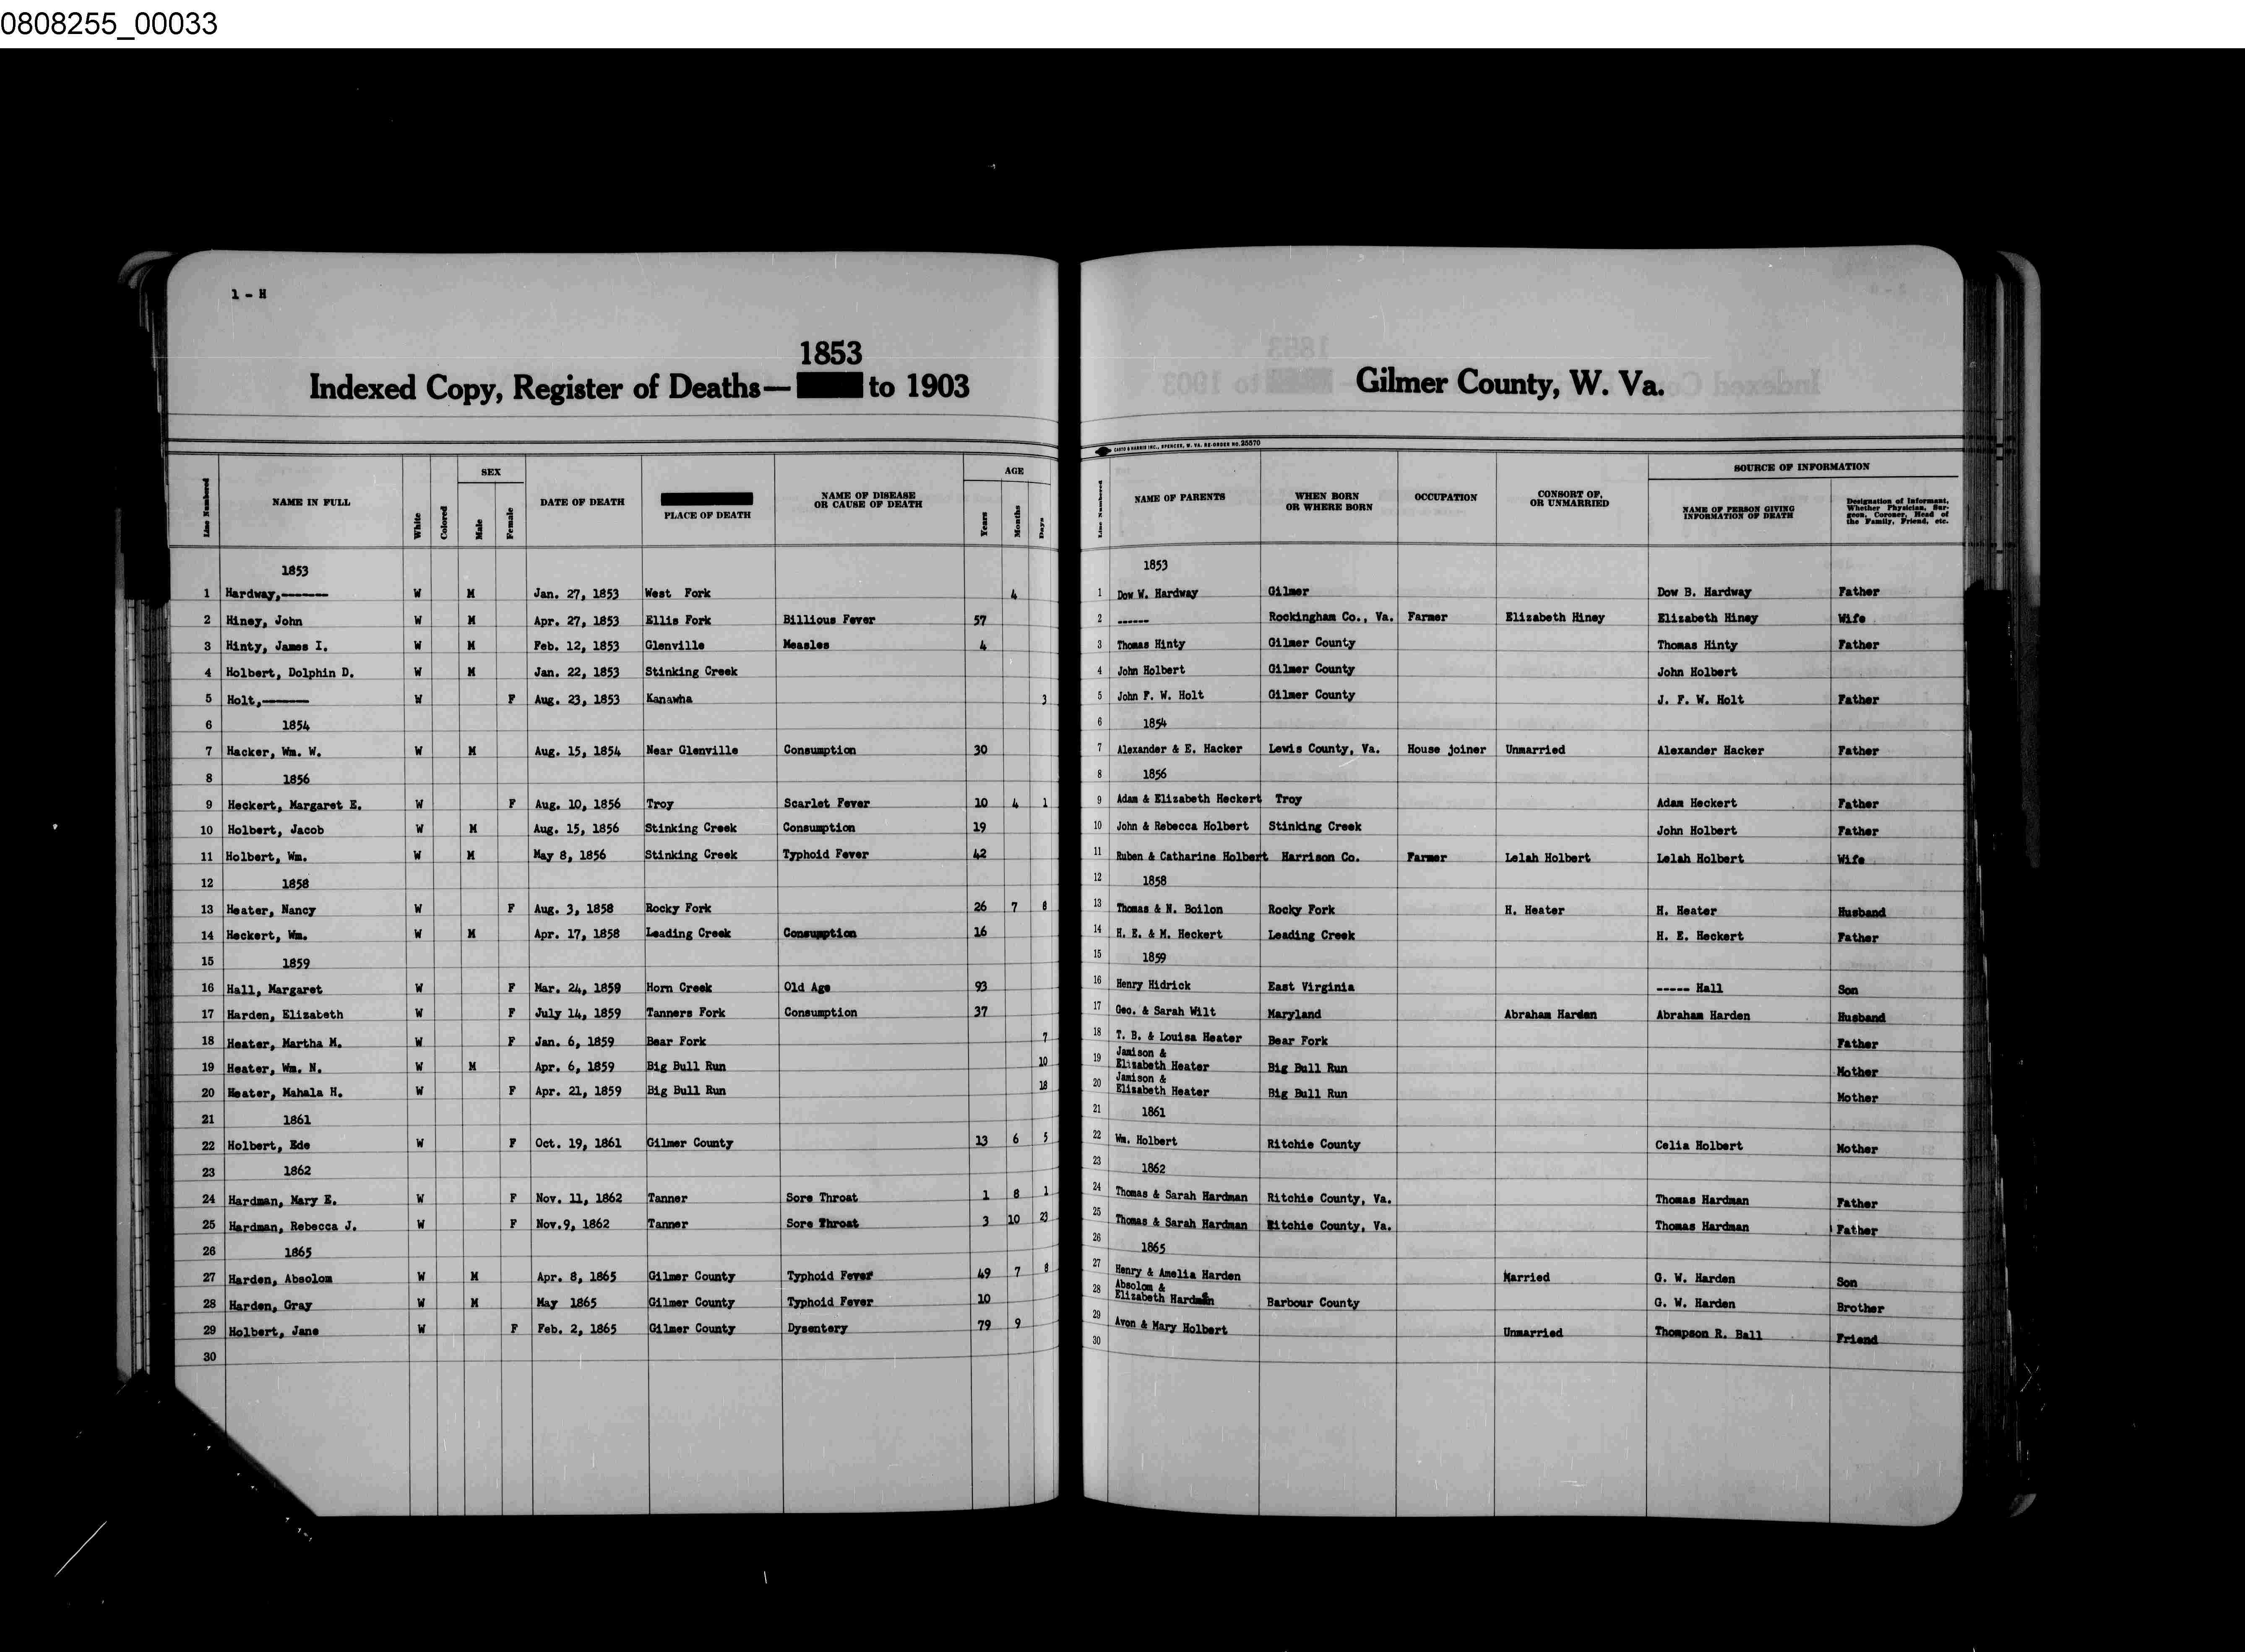 0808255_00033
1 - H
1853
Indexed Copy, Register of Deaths— to 1903
Line Numbered NAME IN FULL White Colored SEX Male Female DATE OF DEATH PLACE OF DEATH NAME OF DISEASE OR CAUSE OF DEATH AGE Years Months Days
1853
1 Hardway,------- W M Jan. 27, 1853 West Fork 4
2 Hiney, John W M Apr. 27, 1853 Ellis Fork Billious Fever 57
3 Hinty, James I. W M Feb. 12, 1853 Glenville Measles 4
4 Holbert, Dolphin D. W M Jan. 22, 1853 Stinking Creek
5 Holt,------- W F Aug. 23, 1853 Kanawha 3
6 1854
7 Hacker, Wm. W. W M Aug. 15, 1854 Near Glenville Consumption 30
8 1856
9 Heckert, Margaret E. W F Aug. 10, 1856 Troy Scarlet Fever 10 4 1
10 Holbert, Jacob W M Aug. 15, 1856 Stinking Creek Consumption 19
11 Holbert, Wm. W M May 8, 1856 Stinking Creek Typhoid Fever 42
12 1858
13 Heater, Nancy W F Aug. 3, 1858 Rocky Fork 26 7 8
14 Heckert, Wm. W M Apr. 17, 1858 Leading Creek Consumption 16
15 1859
16 Hall, Margaret W F Mar. 24, 1859 Horn Creek Old Age 93
17 Harden, Elizabeth W F July 14, 1859 Tanners Fork Consumption 37
18 Heater, Martha M. W F Jan. 6, 1859 Bear Fork 7
19 Heater, Wm. N. W M Apr. 6, 1859 Big Bull Run 10
20 Heater, Mahala H. W F Apr. 21, 1859 Big Bull Run 18
21 1861
22 Holbert, Ede W F Oct. 19, 1861 Gilmer County 13 6 5
23 1862
24 Hardman, Mary E. W F Nov. 11, 1862 Tanner Sore Throat 1 8 1
25 Hardman, Rebecca J. W F Nov.9, 1862 Tanner Sore Throat 3 10 23
26 1865
27 Harden, Absolom W M Apr. 8, 1865 Gilmer County Typhoid Fever 49 7 8
28 Harden, Gray W M May 1865 Gilmer County Typhoid Fever 10
29 Holbert, Jane W F Feb. 2, 1865 Gilmer County Dysentery 79 9
30
Gilmer County, W. Va.
CASTO & HARRIS INC., SPENCER, W. VA. RE-ORDER NO. 25570
Line Numbered NAME OF PARENTS WHEN BORN OR WHERE BORN OCCUPATION CONSORT OF, OR UNMARRIED SOURCE OF INFORMATION NAME OF PERSON GIVING INFORMATION OF DEATH Designation of Informant, Whether Physician, Surgeon, Coroner, Head of the Family, Friend, etc.
1853
1 Dow W. Hardway Gilmer Dow B. Hardway Father
2 ------ Rockingham Co., Va. Farmer Elizabeth Hiney Elizabeth Hiney Wife
3 Thomas Hinty Gilmer County Thomas Hinty Father
4 John Holbert Gilmer County John Holbert
5 John F. W. Holt Gilmer County J. F. W. Holt Father
6 1854
7 Alexander & E. Hacker Lewis County, Va. House joiner Unmarried Alexander Hacker Father
8 1856
9 Adam & Elizabeth Heckert Troy Adam Heckert Father
10 John & Rebecca Holbert Stinking Creek John Holbert Father
11 Ruben & Catharine Holbert Harrison Co. Farmer Lelah Holbert Lelah Holbert Wife
12 1858
13 Thomas & N. Boilon Rocky Fork H. Heater H. Heater Husband
14 H. E. & M. Heckert Leading Creek H. E. Heckert Father
15 1859
16 Henry Hidrick East Virginia ----- Hall Son
17 Geo. & Sarah Wilt Maryland Abraham Harden Abraham Harden Husband
18 T. B. & Louisa Heater Bear Fork Father
19 Jamison & Elizabeth Heater Big Bull Run Mother
20 Jamison & Elizabeth Heater Big Bull Run Mother
21 1861
22 Wm. Holbert Ritchie County Celia Holbert Mother
23 1862
24 Thomas & Sarah Hardman Ritchie County, Va. Thomas Hardman Father
25 Thomas & Sarah Hardman Ritchie County, Va. Thomas Hardman Father
26 1865
27 Henry & Amelia Harden Married G. W. Harden Son
28 Absolom & Elizabeth Hardman Barbour County G. W. Harden Brother
29 Avon & Mary Holbert Unmarried Thompson R. Ball Friend
30